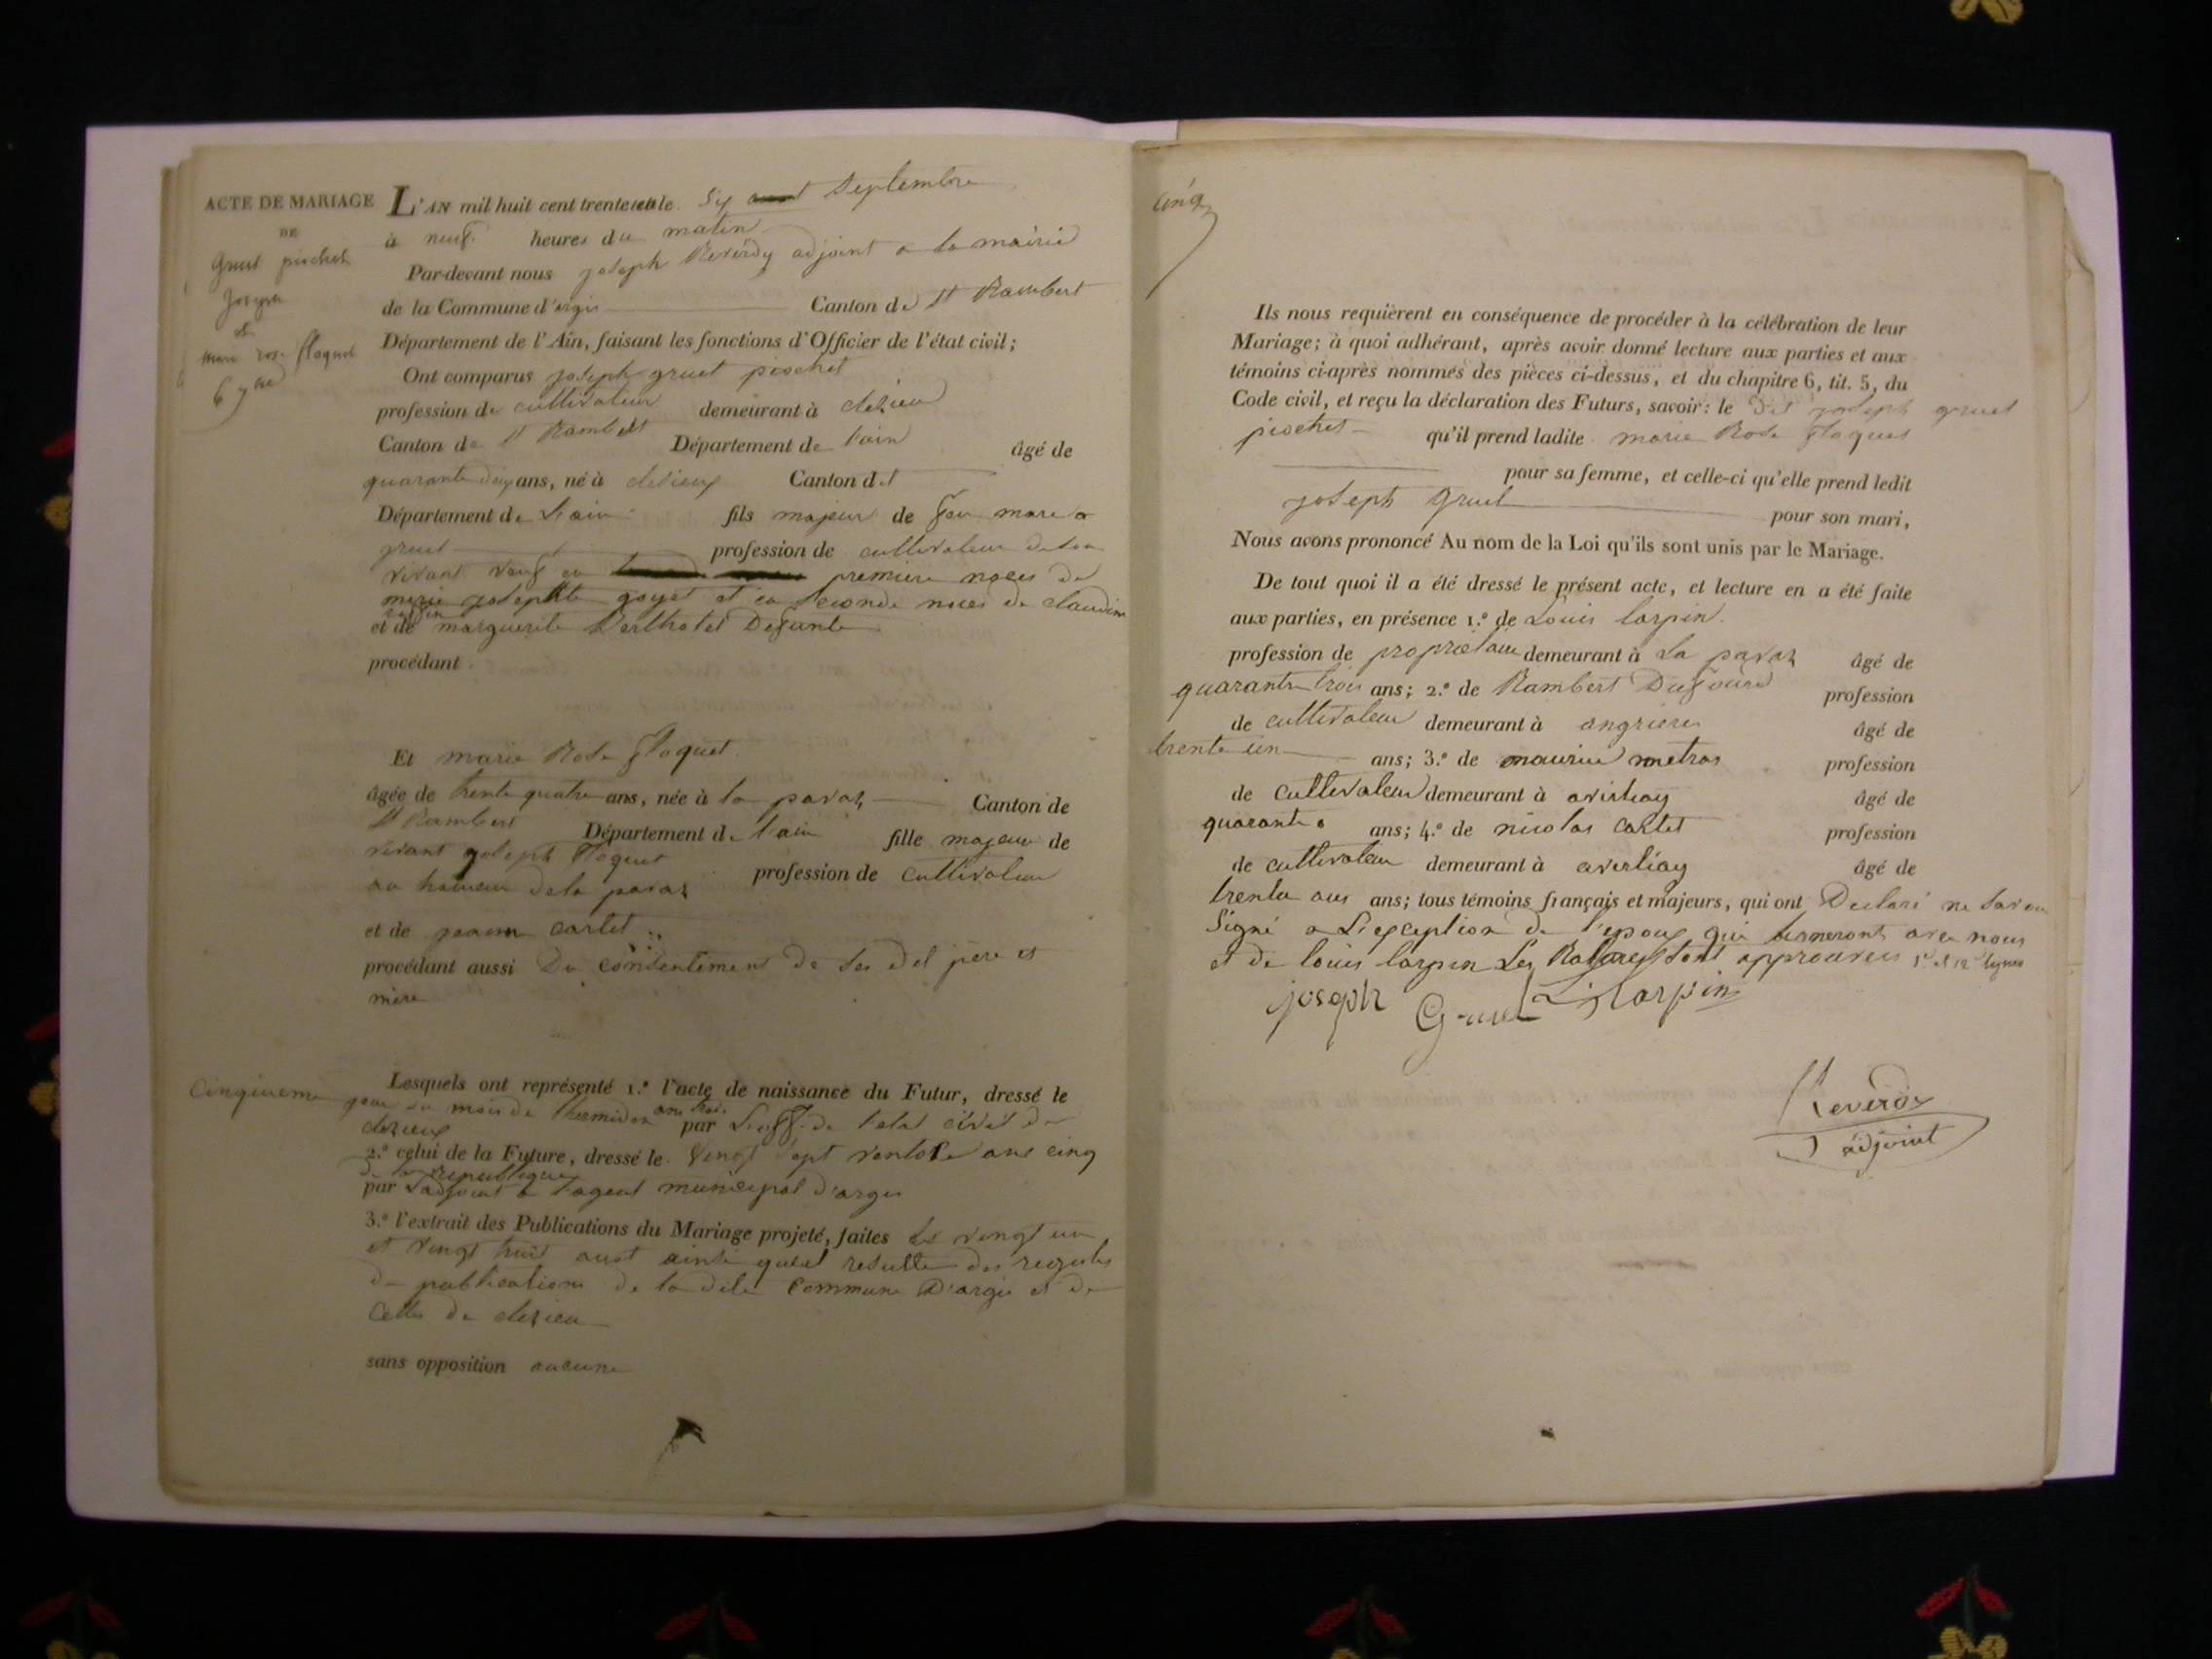 ACTE DE MARIAGE
DE
Gruet piochet
joseph
et
marie rose floquet
6 7bre
L'AN mil huit cent trente le six septembre
à neuf heures du matin
Par-devant nous joseph Reverdy adjoint a la mairie
de la Commune d'argis Canton de St Rambert
Département de l'Ain, faisant les fonctions d'Officier de l'état civil;
Ont comparus joseph gruet piochet
profession de cultivateur demeurant à clezieu
Canton de St Rambert Département de l'ain âgé de
quarante deux ans, né à clezieux Canton de
Département de L'ain fils majeur de feu
gruet profession de cultivateur de son
vivant veuf en premiere noces de
marie josephte goyet et en seconde noces de claudine
et de marguerite Berthelet Defunte
procédant
Et marie Rose floquet
âgée de trente quatre ans, née à la pavaz Canton de
St Rambert Département de l'ain fille majeure de
vivant joseph floquet profession de cultivateur
au hameau de la pavaz
et de jeanne carlet
procédant aussi Du consentement de ses dit père et
mère
Lesquels ont représenté 1.º l'acte de naissance du Futur, dressé le
cinquieme jour du mois de thermidor an trois par L'off. de l'etat civil de
clezieux
2.º celui de la Future, dressé le vingt sept ventose ans cinq
de la republique
par L'adjoint a l'agent municipal d'argis
3.º l'extrait des Publications du Mariage projeté, faites les vingt un
et vingt huit aout ainsi qu'il resulte des registres
de publications de la dite commune D'argis et de
celles de clezieu
sans opposition aucune
cinq
Ils nous requièrent en conséquence de procéder à la célébration de leur
Mariage; à quoi adhérant, après avoir donné lecture aux parties et aux
témoins ci-après nommés des pièces ci-dessus, et du chapitre 6, tit. 5, du
Code civil, et reçu la déclaration des Futurs, savoir: le dit joseph gruet
piochet qu'il prend ladite marie Rose floquet
pour sa femme, et celle-ci qu'elle prend ledit
joseph gruet pour son mari,
Nous avons prononcé Au nom de la Loi qu'ils sont unis par le Mariage.
De tout quoi il a été dressé le présent acte, et lecture en a été faite
aux parties, en présence 1.º de Louis larpin
profession de proprietaire demeurant à La pavaz âgé de
quarante trois ans; 2.º de Rambert Dufour profession
de cultivateur demeurant à angrieres âgé de
trente un ans; 3.º de maurice metras profession
de cultivateur demeurant à âgé de
quarante ans; 4.º de nicolas carlet profession
de cultivateur demeurant à averliay âgé de
trente ans; tous témoins français et majeurs, qui ont Declaré ne savoir
Signé a L'exception de l'epoux qui signeront avec nous
et de louis larpin Les Ratures sont approuvées 1e et 12 lignes
joseph Gruet L. larpin
Reverdy
adjoint